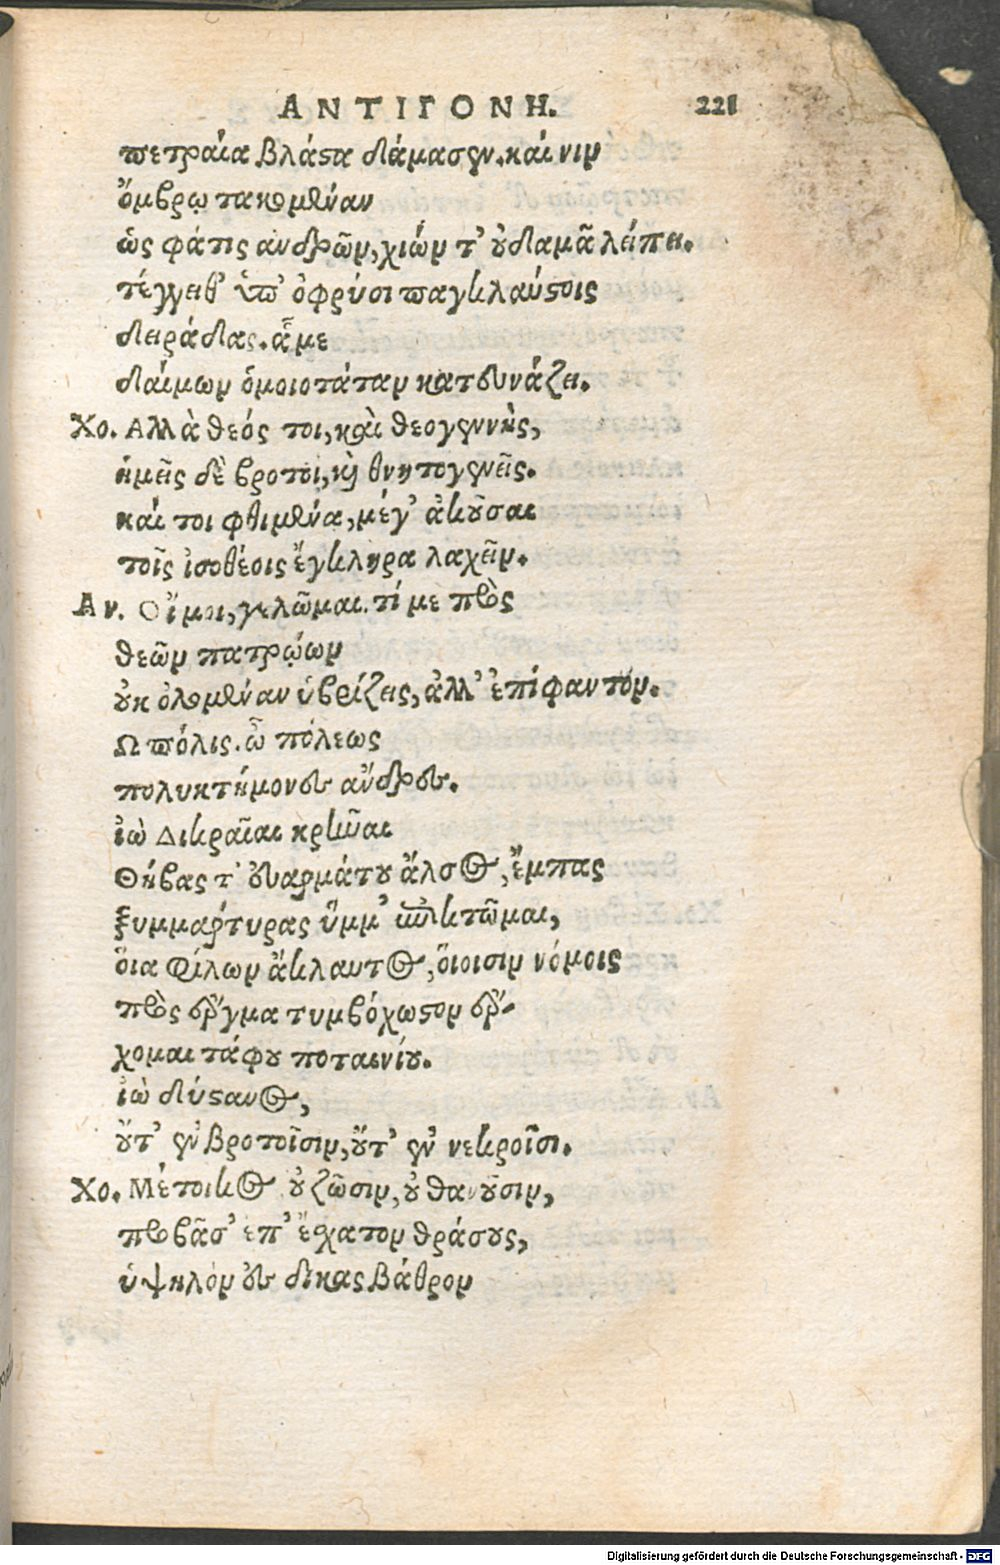 ΑΝΤΙΓΟΝΗ. 221
πετραία βλάστα δάμασεν. καί νιν
ὄμβρῳ τακομέναν
ὡς φάτις ανδρῶν, χιών τ' ουδαμᾶ λείπει.
τέγγειθ' ὑπ' ὀφρύσι παγκλαύστοις
δειράδας. ἇ με
δαίμων ὁμοιοτάταν κατευνάζει.
Χο. Αλλὰ θεός τοι, καὶ θεογεννὴς,
ἡμεῖς δὲ βροτοι, καὶ θνητογενεῖς.
καί τοι φθιμένα, μέγ' ἀκοῦσαι
τοῖς ἰσοθέοις ἔγκληρα λαχεῖν.
Αν. Οἴμοι, γελῶμαι. τί με πρὸς
θεῶν πατρῴων
ουκ ὀλομέναν ὑβρίζεις, ἀλλ' ἐπίφαντον.
Ω πόλις. ὦ πόλεως
πολυκτήμονες ἄνδρες.
ἰὼ Διρκαῖαι κρῆναι
Θήβας τ' ευαρμάτου ἄλσος, ἔμπας
ξυμμάρτυρας ὔμμ' ἐπικτῶμαι,
ὅια φίλων ἄκλαυτος, ὅιοισιν νόμοις
πρὸς ἕργμα τυμβόχωστον ἔρ-
χομαι τάφου ποταινίου.
ἰὼ δύστανος,
οὔτ' ἐν βροτοῖσιν, οὔτ' ἐν νεκροῖσι.
Χο. Μέτοικος οὐ ζῶσιν, οὐ θανοῦσιν,
προβᾶσ' επ' ἔσχατον θράσους,
ὑψηλὸν ἐς δίκας βάθρον
Digitalisierung gefördert durch die Deutsche Forschungsgemeinschaft - DFG